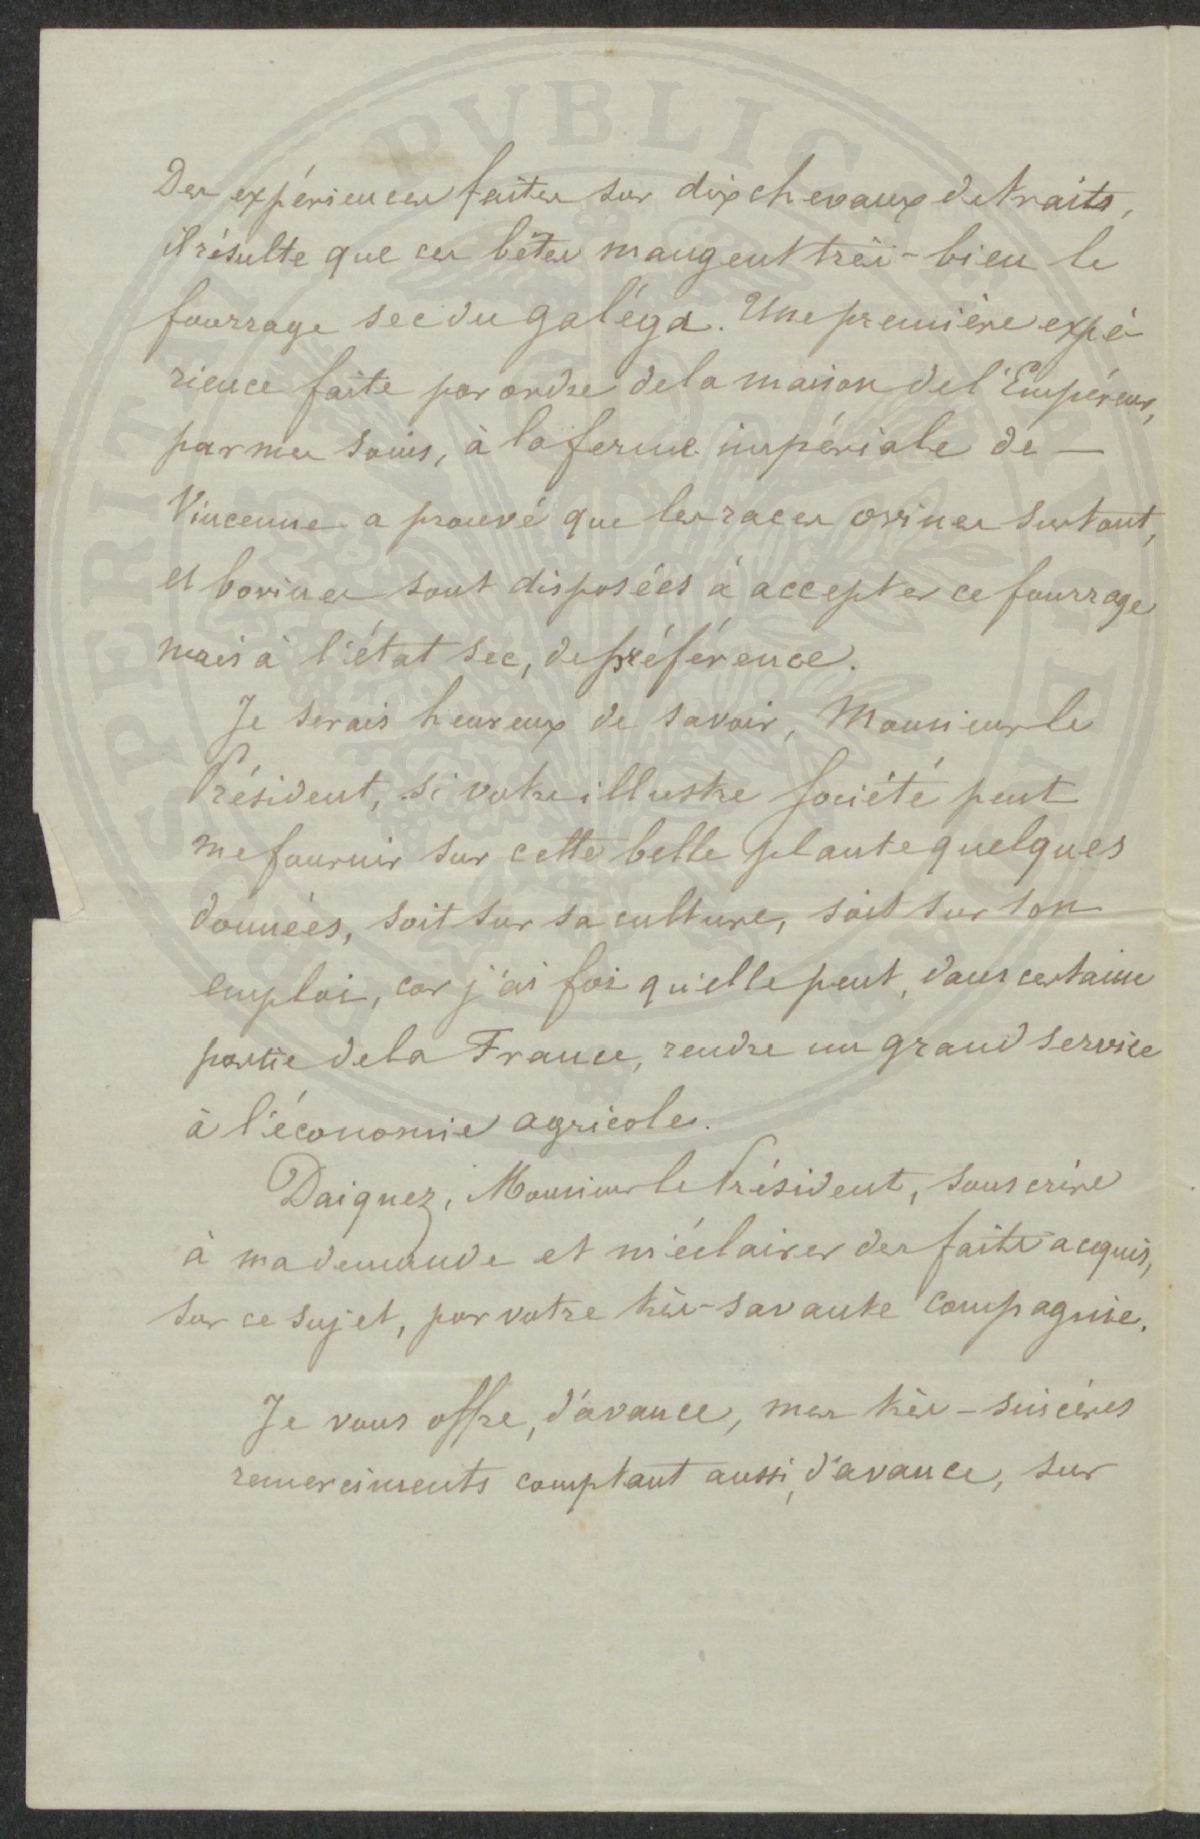 Des expériences faites sur dix chevaux de traits,
il résulte que ces bêtes mangent très-bien le
fourrage sec du galéga. Une première expé-
rience faite par ordre de la maison de l'Empéreur,
par mes soins, à la ferme impériale de —
Vincenne a prouvé que les races ovines surtout,
et bovines sont disposées à accepter ce fourrage
mais à l'état sec, de préférence.
Je serais heureux de savoir, Monsieur le
Président, si votre illustre Société peut
me fournir sur cette belle plante quelques
données, soit sur sa culture, soit sur son
emploi, car j'ai foi qu'elle peut, dans certaine
partie de la France, rendre un grand service
à l'économie agricole.
Daignez, Monsieur le Président, souscrire
à ma demande et m'éclairer des faits acquis,
sur ce sujet, par votre très-savante Compagnie.
Je vous offre, d'avance, mes très-sincères
remerciments comptant aussi, d'avance, sur